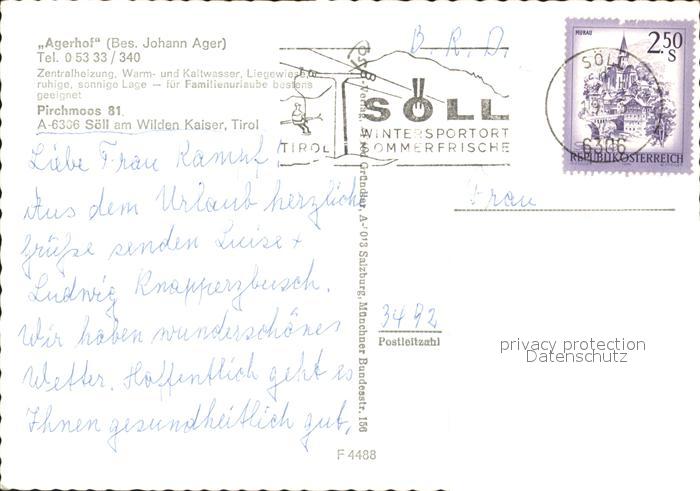 „Agerhof" (Bes. Johann Ager)
Tel. 0 53 33 / 340
Zentralheizung, Warm- und Kaltwasser, Liegewiese,
ruhige, sonnige Lage — für Familienurlaube bestens
geeignet
Pirchmoos 81.
A-6306 Söll am Wilden Kaiser, Tirol
Liebe Frau Kampf!
Aus dem Urlaub herzliche
Grüße senden Luise +
Ludwig Knapperzbusch.
Wir haben wunderschönes
Wetter. Hoffentlich geht es
Ihnen gesundheitlich gut,
B. R. D.
SÖLL
WINTERSPORTORT
SOMMERFRISCHE
TIROL
MURAU
2.50
S
REPUBLIK ÖSTERREICH
SÖLL
6306
Gründler, A-5013 Salzburg, Münchner Bundesstr. 156
Frau
3492
Postleitzahl
privacy protection
Datenschutz
F 4488